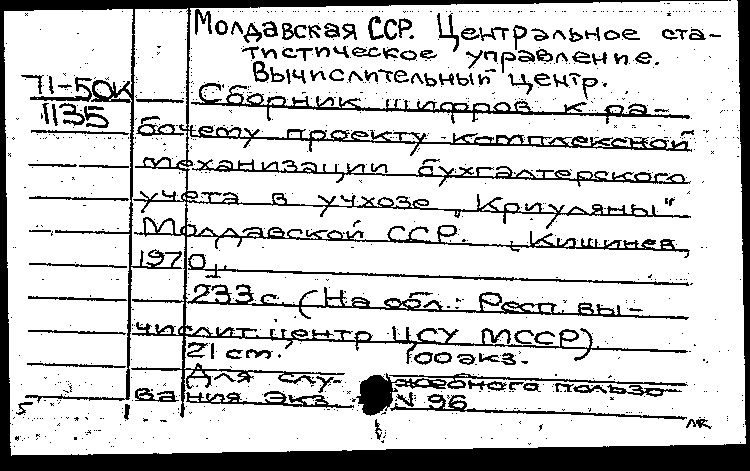 Молдавская ССР. Центральное ста-
тистическое управление.
Вычислительный центр.
71-50к
1135
Сборник шифров к ра-
бочему проекту комплексной
механизации бухгалтерского
учета в учхозе „Криуляны"
Молдавской ССР. [Кишинев,
1970].
233 с. (На обл.: Респ. вы-
числит. центр ЦСУ МССР)
21 см. 100 экз.
Для служебного пользо-
вания Экз. N 96